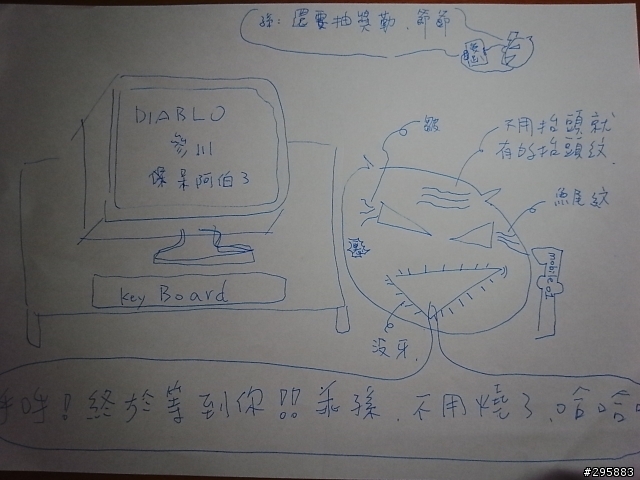 孫：還要抽獎勒，爺爺
DIABLO
參川
保呆阿伯3
皺
不用抬頭就
有的抬頭紋
魚尾紋
mobile01
KeyBoard
沒牙
呼呼！終於等到你!! 乖孫，不用燒了，哈哈
#295883